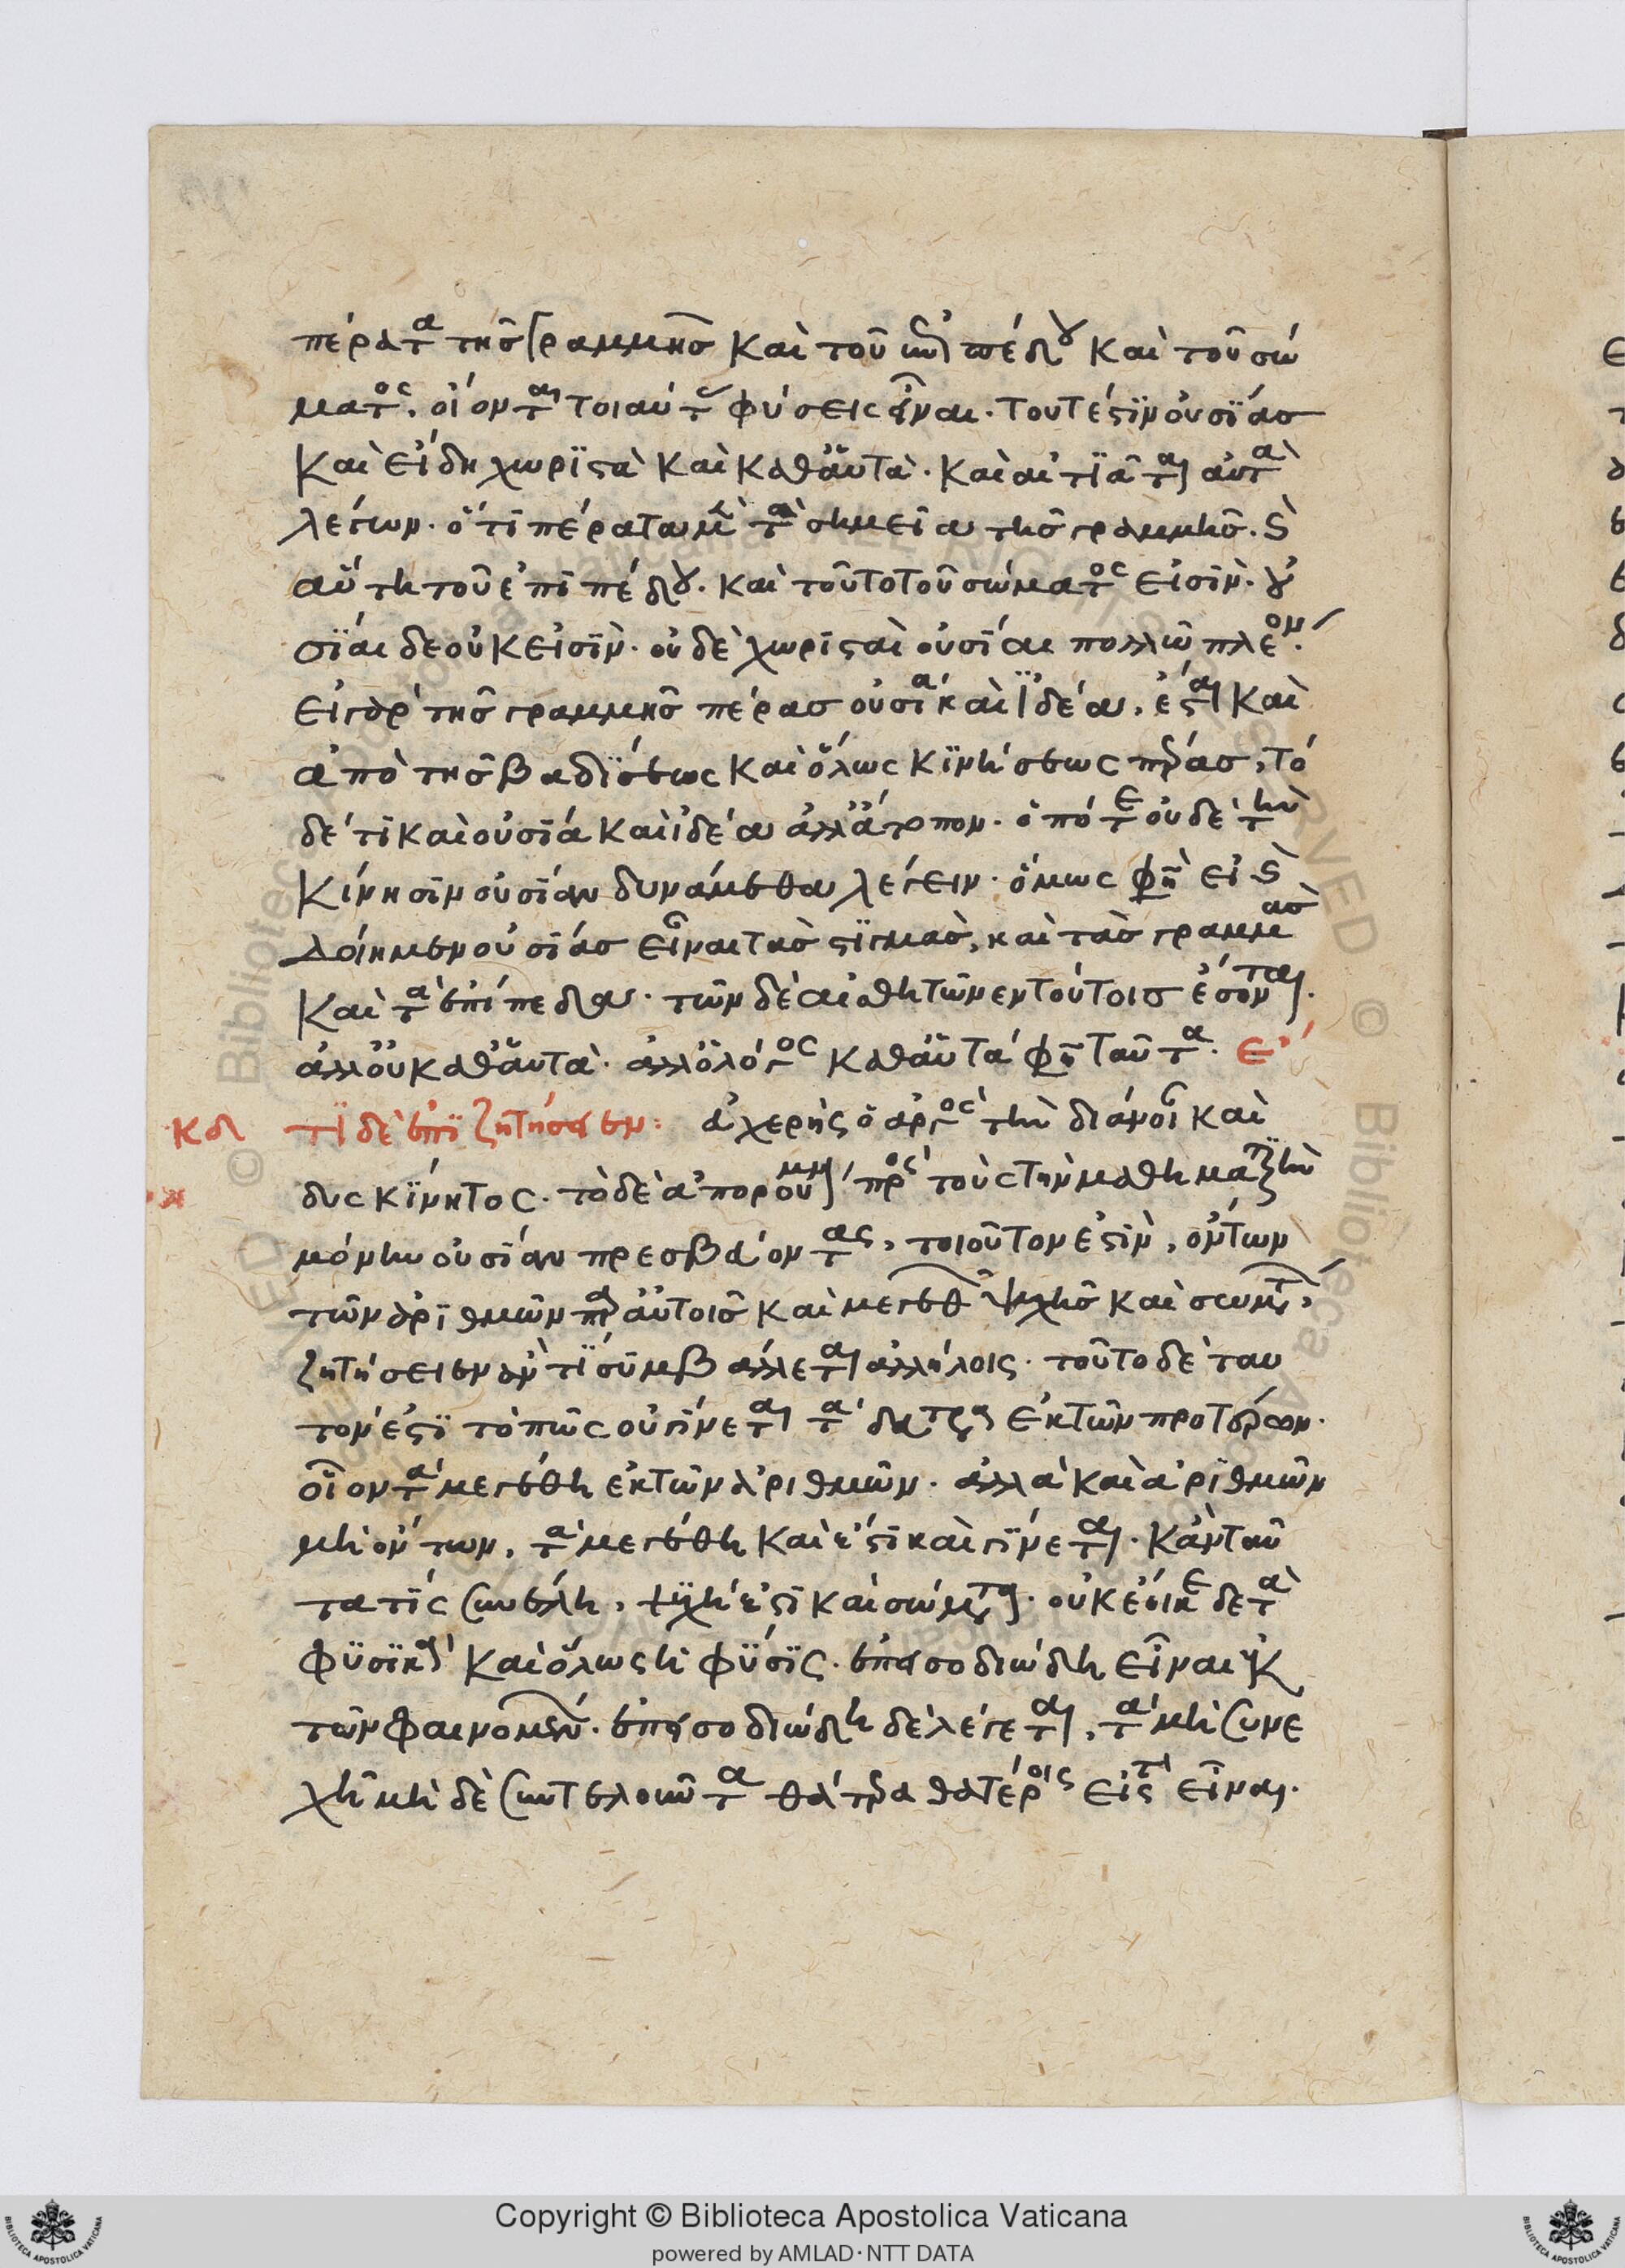 πέρατα τῆς γραμμῆς καὶ τοῦ ἐπιπέδου καὶ τοῦ σώ
ματος, οἴονται τοιαύτας φύσεις εἶναι. τουτέστιν οὐσίας
καὶ εἴδη χωριστὰ καὶ καθ' αὑτά. καὶ αἰτιᾶται αὐτὰ
λέγων. ὅτι πέρατα μὲν τὰ σημεῖα τῆς γραμμῆς. καὶ
αὕτη τοῦ ἐπιπέδου. καὶ τοῦτο τοῦ σώματος εἰσίν. οὐ
σίαι δε οὐκ εἰσίν. οὐδὲ χωρισταὶ οὐσίαι πολλῶ πλέον.
εἰ γὰρ τῆς γραμμῆς πέρας οὐσία καὶ ἰδέα, ἔσται καὶ
ἀπὸ τῆς βαδίσεως καὶ ὅλως κινήσεως πέρας, τό
δέ τι καὶ οὐσία καὶ ἰδέα ἀλλ' ἄτοπον. ὁπότε οὐδὲ τὴν
κίνησιν οὐσίαν δυνάμεθα λέγειν. ὅμως φησὶν εἰ καὶ
δοίημεν οὐσίας εἶναι τὰς στιγμάς, καὶ τὰς γραμμὰς
καὶ τὰ ἐπίπεδα. τῶν δὲ αἰσθητῶν ἐν τούτοις ἔσονται.
ἀλλ' οὐ καθ' αὑτά. ἀλλ' ὁ λόγος καθ' αὑτά φησι ταῦτα. ε
κδ τὶ δὲ ἐπιζητήσειεν: εὐχερὴς ὁ ἀργὸς τὴν διάνοιαν καὶ
δυσκίνητος. τὸ δὲ ἀπορούμενον πρὸς τοὺς τὴν μαθηματικὴν
μόνην οὐσίαν πρεσβεύοντας, τοιοῦτον ἐστίν, ὄντων
τῶν ἀριθμῶν παρ' αὐτοῖς καὶ μεγεθῶν ψυχῆς καὶ σωμάτων,
ζητήσειεν ἄν τί συμβάλλεται ἀλλήλοις. τοῦτο δὲ ταυ
τόν ἐστι τὸ πῶς οὐ γίνεται τὰ δεύτερα ἐκ τῶν προτέρων.
οἷον τὰ μεγέθη ἐκ τῶν ἀριθμῶν. ἀλλὰ καὶ ἀριθμῶν
μὴ ὄντων, τὰ μεγέθη καὶ ἔστι καὶ γίνεται. κἂν ταῦ
τα τίς συνέλη, ψυχή ἐστι καὶ σώματα. οὐκ ἔοικε δε τὰ
φυσικὰ καὶ ὅλως ἡ φύσις. ἐπεισοδιώδη εἶναι ἐκ
τῶν φαινομένων. ἐπεισοδιώδη δὲ λέγεται, τὰ μὴ συνε
χῆ μὴ δὲ συντελοῦντα θάτερα θατέροις εἰς τι εἶναι.
Copyright © Biblioteca Apostolica Vaticana
powered by AMLAD·NTT DATA